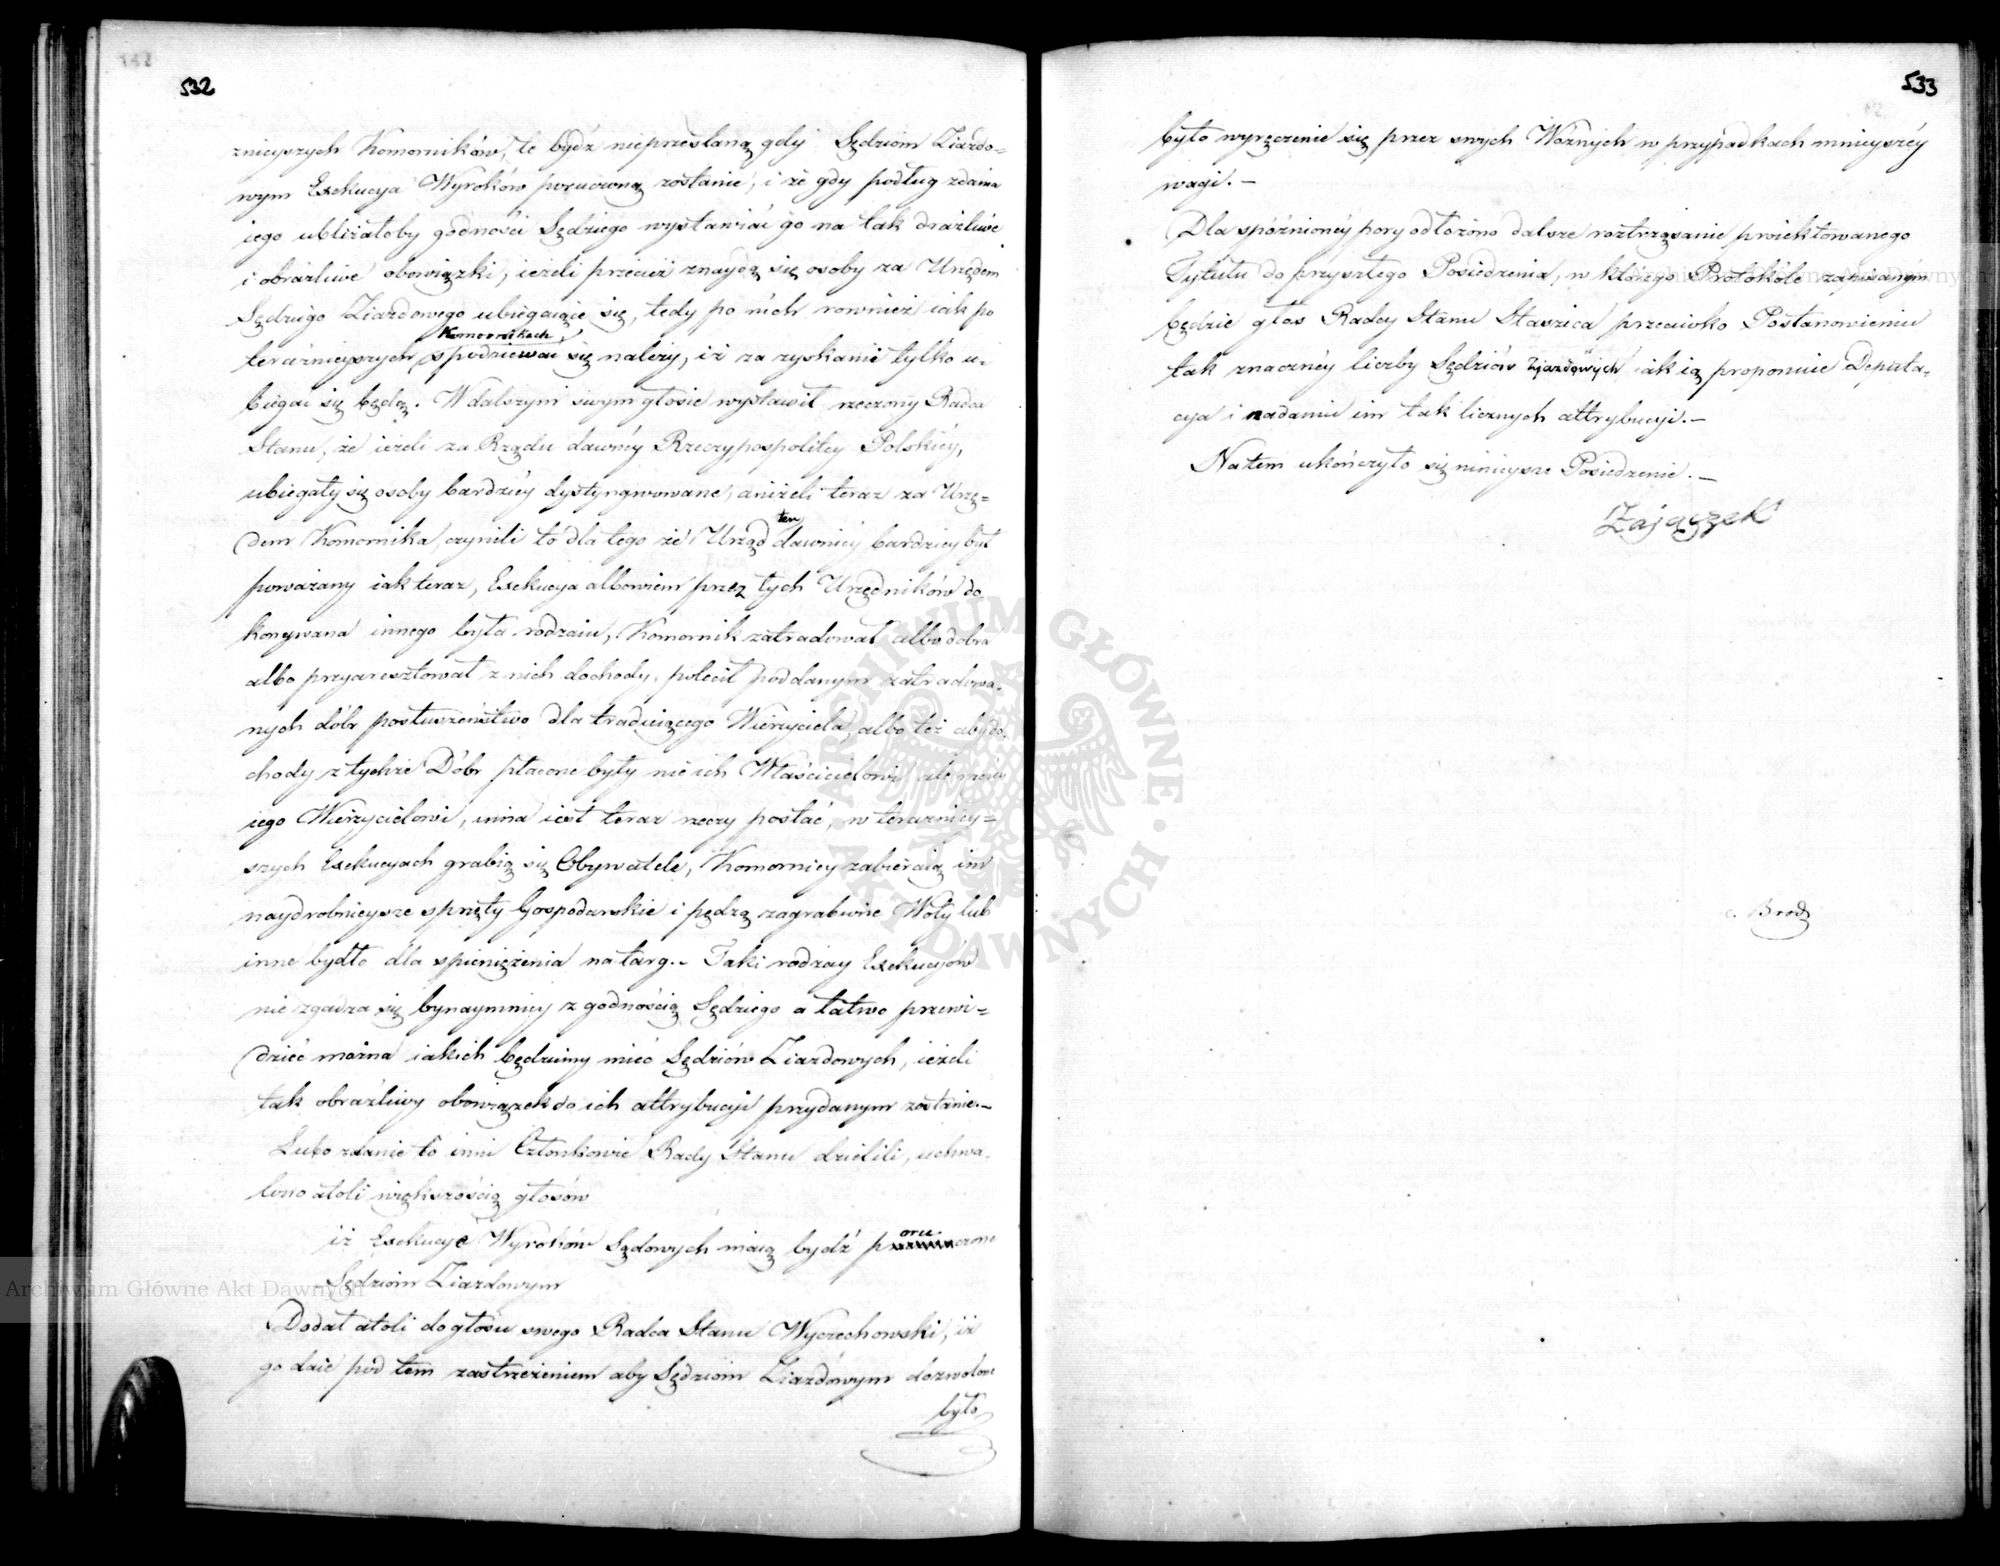 532
znieyszych Komorników, te bydź nieprzestaną gdy Sędziom Ziazdo-
wym Exekucya Wyroków poruczoną zostanie, i że gdy podług zdania
iego ubliżałoby godności Sędziego wystawiać go na tak drażliwe
i obraźliwe obowiązki, ieżeli przecież znaydą się osoby za Urzędem
Sędziego Ziazdowego ubiegaiące się, tedy po nich rownież iak po
teraźnieyszych Komornikach, spodziewać się należy, iż za zyskanie tylko u-
biegać się będą. W dalszym swym głosie wystawił rzeczony Radca
Stanu, że ieżeli za Rządu dawnéy Rzeczypospolitey Polskiéy,
ubiegały się osoby bardziéy dystyngwowane, aniżeli teraz za Urzę-
dem Komornika, czynili to dla tego że Urząd ten dawniéy bardziey był
poważany iak teraz, Exekucya albowiem przez tych Urzędników do-
konywana innego była rodzaiu, Komornik zatradował albo dobra
albo przyaresztował z nich dochody, polecił poddanym zatradowa-
nych dóbr posłuszeństwo dla traduiącego Wierzyciela, albo też aby do-
chody z tychże Dóbr płacone były nie ich Właścicielowi ale
iego Wierzycielowi, inna iest teraz rzeczy postać, w teraźniey-
szych Exekucyach grabią się Obywatele, Komornicy zabieraią im
naydrobnieysze sprzęty Gospodarskie i pędzą zagrabione Woły lub
inne bydło dla spieniężenia na targ.- Taki rodzay Exekucyów
nie zgadza się bynaymniey z godnością Sędziego a łatwo przewi-
dzieć można iakich będziemy mieć Sędziów Ziazdowych, ieżeli
tak obraźliwy obowiązek do ich attrybucyi przydanym zostanie.-
Lubo zdanie to inni Członkowie Rady Stanu dzielili, uchwa-
lono atoli większością głosów
iż Exekucye Wyroków Sądowych maią bydź poruczone
Sędziom Ziazdowym
Dodał atoli do głosu swego Radca Stanu Wyczechowski, iż
go daie pod tem zastrzeżeniem aby Sędziom Ziazdowym dozwolone
było
533
było wyręczenie się przez swych Woźnych w przypadkach mnieyszéy
wagi.-
Dla spóźnionéy pory odłożono dalsze roztrząsanie proiektowanego
Tytułu do przyszłego Posiedzenia, w którego Protokóle zapisanym
będzie głos Radcy Stanu Staszica przeciwko Postanowieniu
tak znacznéy liczby Sędziów Zjazdowych iak ią proponuie Deputa-
cya i nadaniu im tak licznych attrybucyi.-
Na tem ukończyło się ninieysze Posiedzenie.-
Zajączek
ARCHIWUM GŁÓWNE AKT DAWNYCH
Archiwum Główne Akt Dawnych